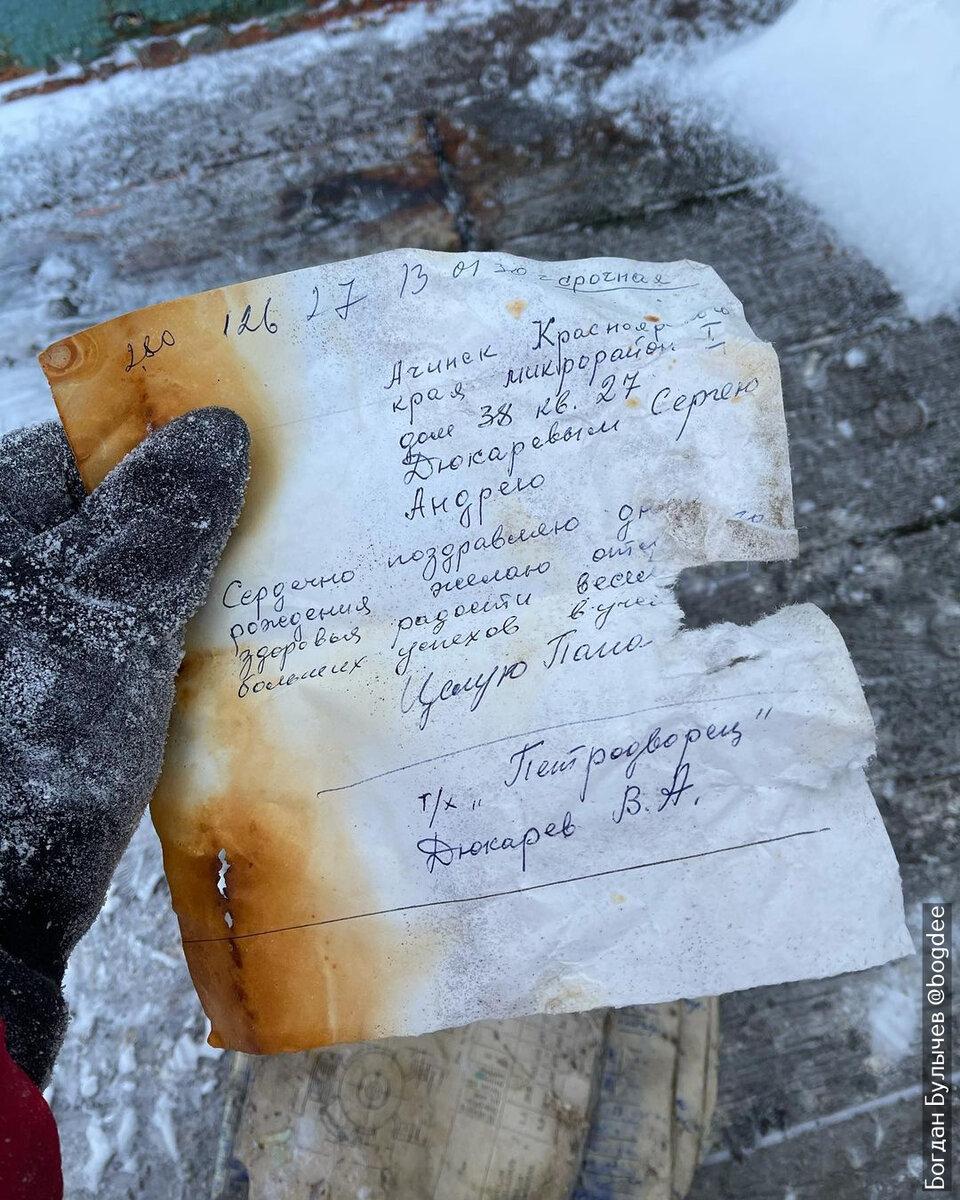 280 126 27 13 01 30 = срочная
Ачинск Красноярского
края микрорайон I
дом 38 кв. 27
Дюкаревым Сергею
Андрею
Сердечно поздравляю
рождения желаю
здоровья радости
больших успехов
Целую Папа
т/х „Петродворец"
Дюкарев В.А.
Богдан Булычев @bogdee